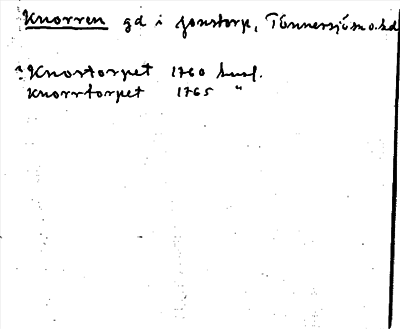 Knorren gd i Jonstorp, Tönnersjö sn o. hd
Knortorpet 1760 husf.
Knorrtorpet 1765 "